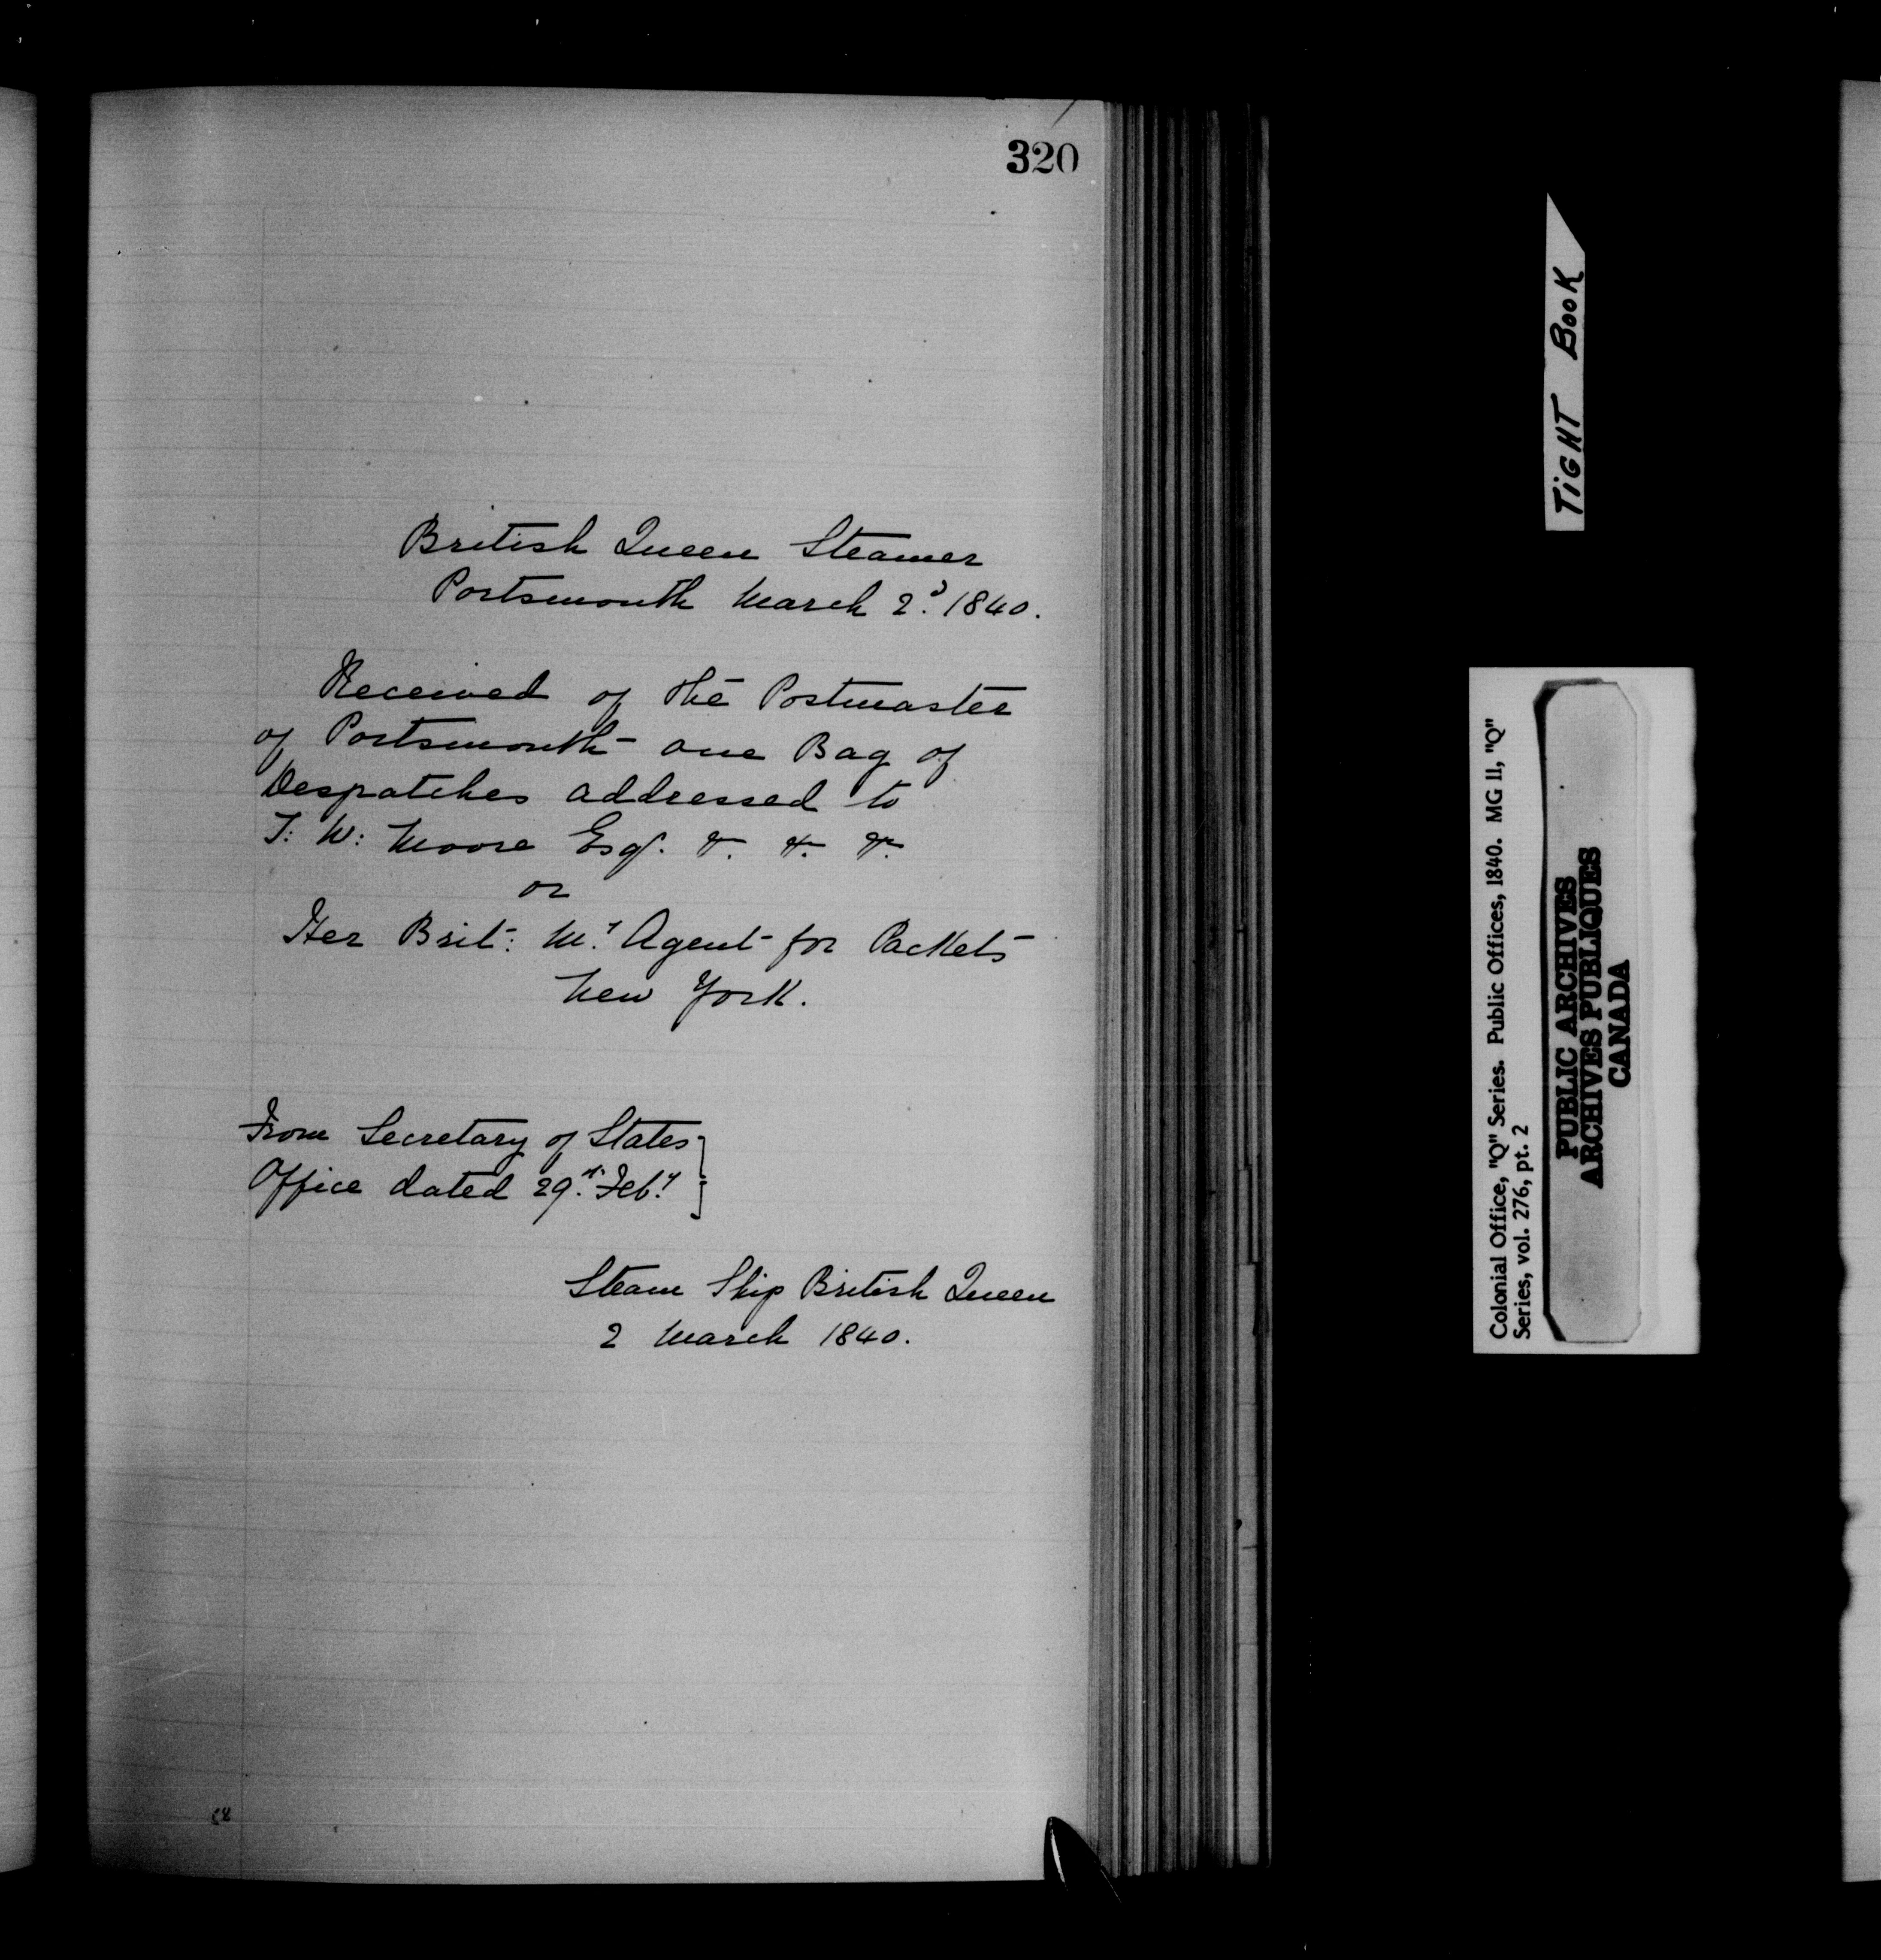 320
British Queen Steamer
Portsmouth March 2d. 1840.
Received of the Postmaster
of Portsmouth one Bag of
Despatches addressed to
T: W: Moore Esqr. &. &. &.
or
Her Brit: My Agent for Packets
New York.
From Secretary of States
Office dated 29th. Feby
Steam Ship British Queen
2 March 1840.
TIGHT BOOK
Colonial Office, "Q" Series. Public Offices, 1840. MG 11, "Q"
Series, vol. 276, pt. 2
PUBLIC ARCHIVES
ARCHIVES PUBLIQUES
CANADA